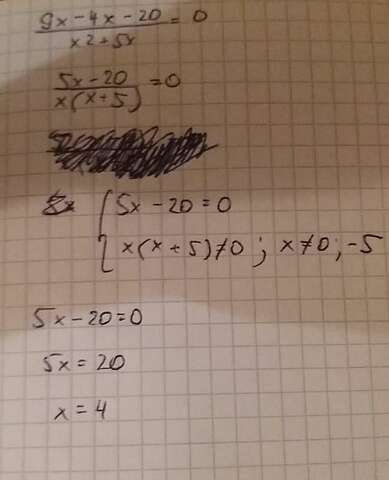 9x-4x-20/x2+5x = 0
5x-20/x(x+5) = 0
{5x-20=0
x(x+5)≠0; x≠0; -5
5x-20=0
5x=20
x=4